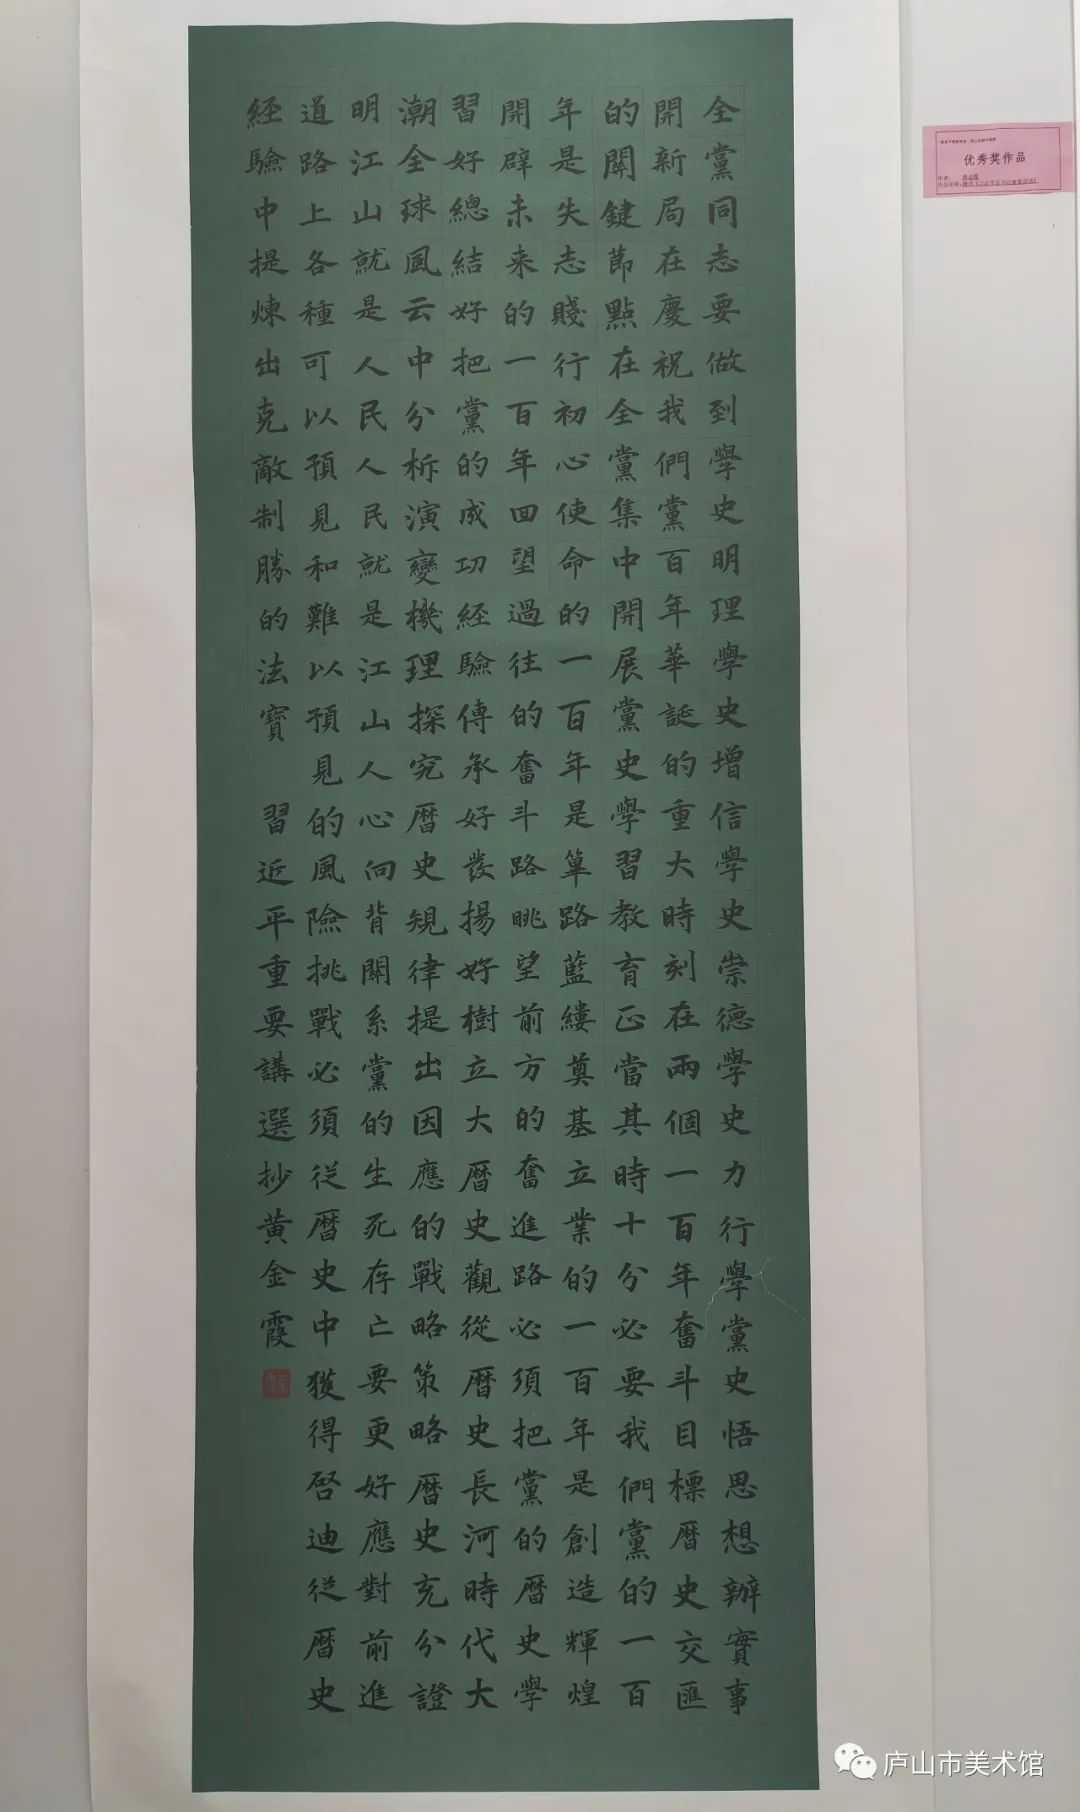 全黨同志要做到學史明理學史增信學史崇德學史力行學黨史悟思想辦實事
開新局在慶祝我們黨百年華誕的重大時刻在兩個一百年奮斗目標暦史交匯
的関鍵節點在全黨集中開展黨史學習教育正當其時十分必要我們黨的一百
年是失志賤行初心使命的一百年是篳路藍縷奠基立業的一百年是創造輝煌
開辟未来的一百年回望過往的奮斗路眺望前方的奮進路必須把黨的暦史學
習好總結好把黨的成功経驗傳承好發揚好樹立大暦史觀從暦史長河時代大
潮全球風云中分析演變機理探究暦史規律提出因應的戰略策略暦史充分證
明江山就是人民人民就是江山人心向背関系黨的生死存亡要更好應對前進
道路上各種可以預見和難以預見的風險挑戰必須從暦史中獲得啓迪從暦史
経驗中提煉出克敵制勝的法寶 習近平重要講選抄黄金霞
优秀奖作品
庐山市美术馆